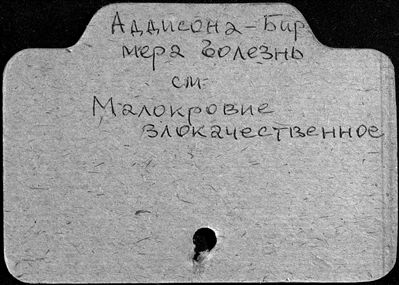 Аддисона-Бир
мера болезнь
см
Малокровие
злокачественное